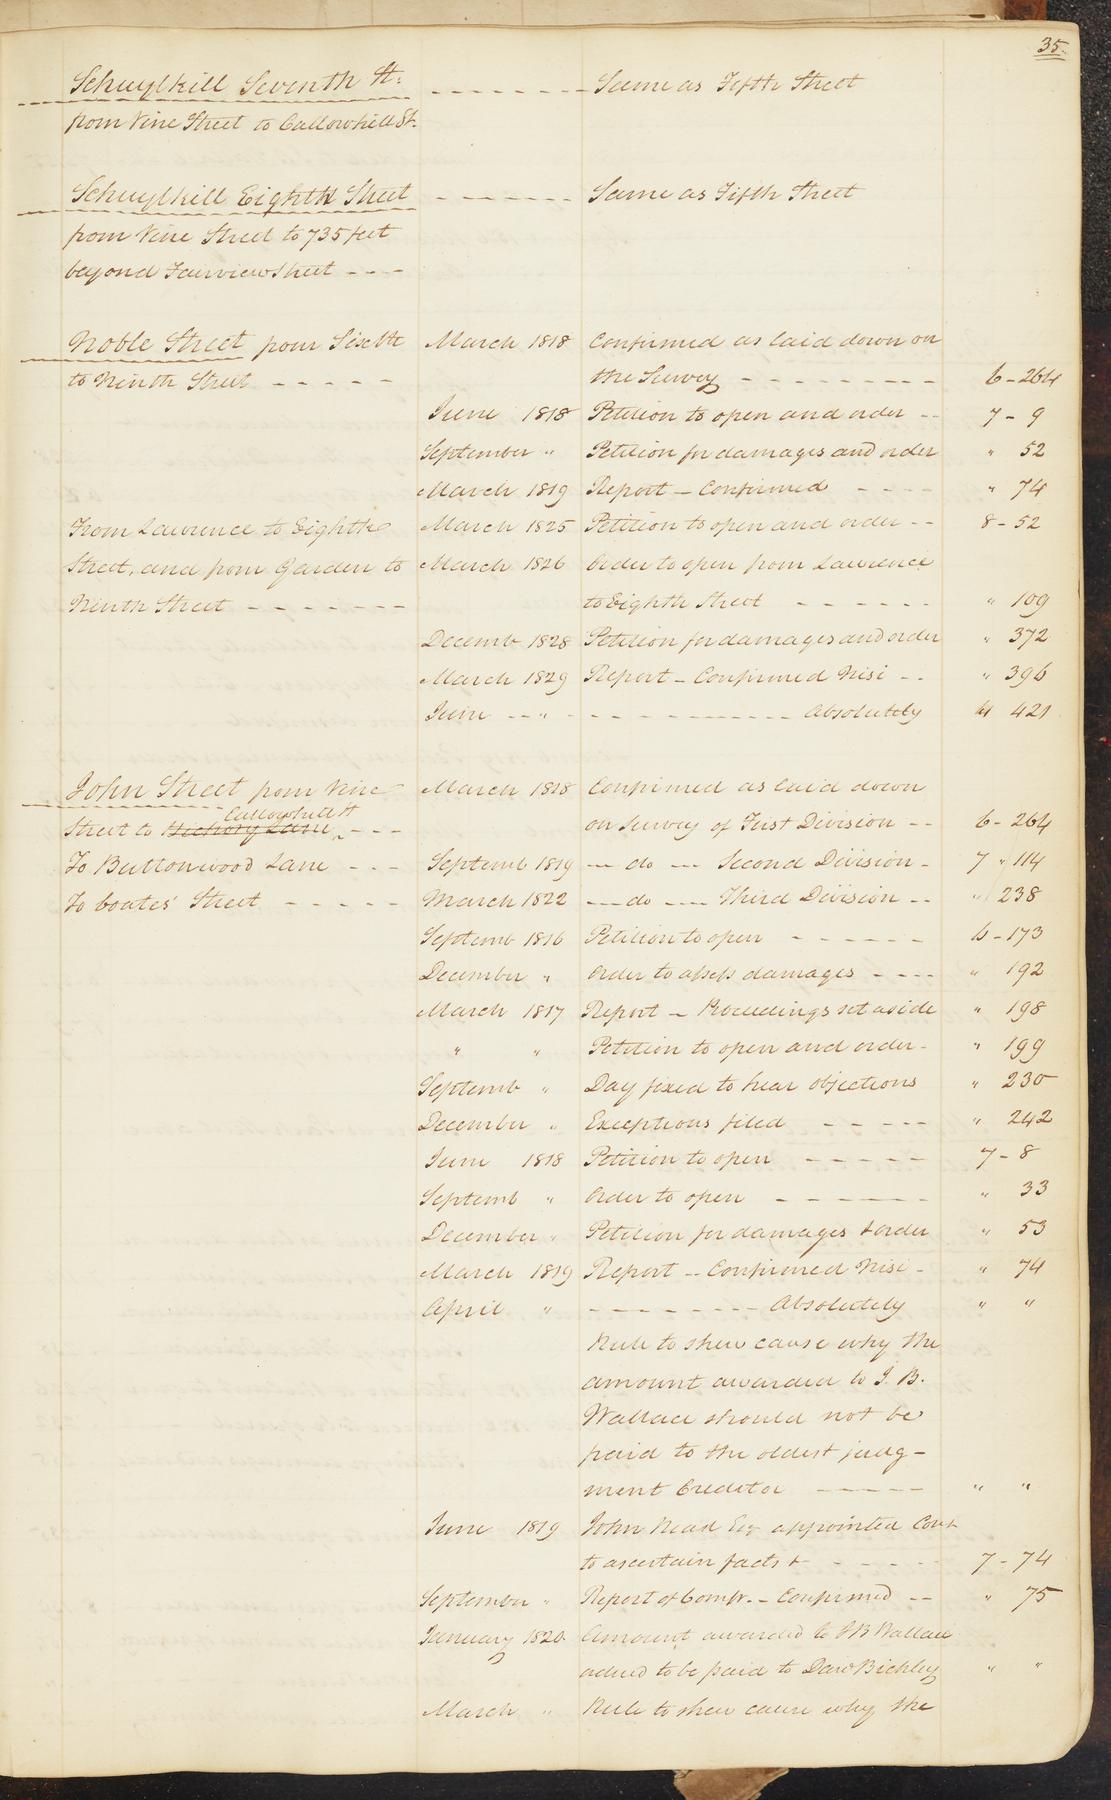 35.
Schuylkill Seventh St: - - - - - - - Same as Fifth Street
from Vine Street to Callowhill St.
Schuylkill Eighth Street - - - - - - Same as Fifth Street
from Vine Street to 735 feet
beyond Fairview Street - - - -
Noble Street from Sixth March 1818 Confirmed as laid down on
to Ninth Street - - - - - the Survey - - - - - - - - - 6 - 264
June 1818 Petition to open and order - - 7 - 9
September " Petition for damages and order " 52
March 1819 Report - Confirmed - - - - " 74
From Lawrence to Eighth March 1825 Petition to open and order - - 8 - 52
Street, and from Garden to March 1826 Order to open from Lawrence
Ninth Street - - - - - - - to Eighth Street - - - - - - " 109
Decemb 1828 Petition for damages and order " 372
March 1829 Report - Confirmed Nisi - - " 396
June - - " - - - - - - - - - - - - Absolutely " 421
John Street from Vine March 1818 Confirmed as laid down
Callowhill St
Street to Hickory Lane - - - on Survey of First Division - - 6 - 264
To Buttonwood Lane - - - Septemb 1819 - do - Second Division - 7 " 114
To Coates' Street - - - - - March 1822 - do - Third Division - - " 238
Septemb 1816 Petition to open - - - - - - 6 - 173
December " Order to assess damages - - - - " 192
March 1817 Report - Proceedings set aside " 198
" " Petition to open and order - " 199
Septemb " Day fixed to hear objections " 230
December " Exceptions filed - - - - - " 242
June 1818 Petition to open - - - - - - 7 - 8
Septemb " Order to open - - - - - - - " 33
December " Petition for damages & order " 53
March 1819 Report - Confirmed Nisi - " 74
April " - - - - - - - - Absolutely " "
Rule to shew cause why the
amount awarded to J. B.
Wallace should not be
paid to the oldest judg-
ment Creditor - - - - - " "
June 1819 John Read Esq appointed Com
to ascertain facts & - - - - - - 7 - 74
September " Report of Comr. - Confirmed - - " 75
January 1820 Amount awarded to J B Wallace
ordered to be paid to Danl Bickley " "
March " Rule to shew cause why the